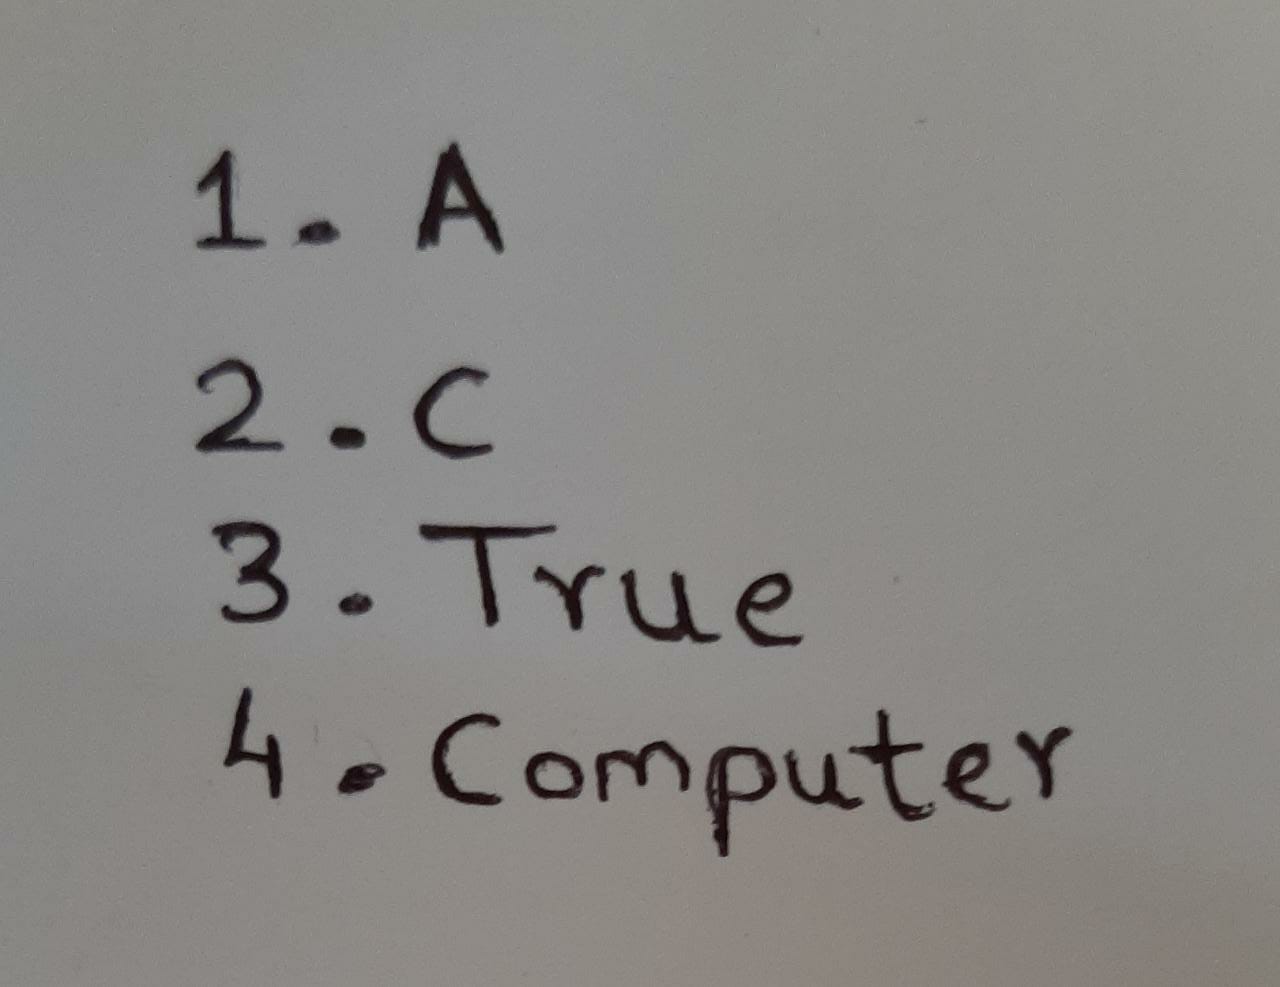 1. A
2. C
3. True
4. Computer